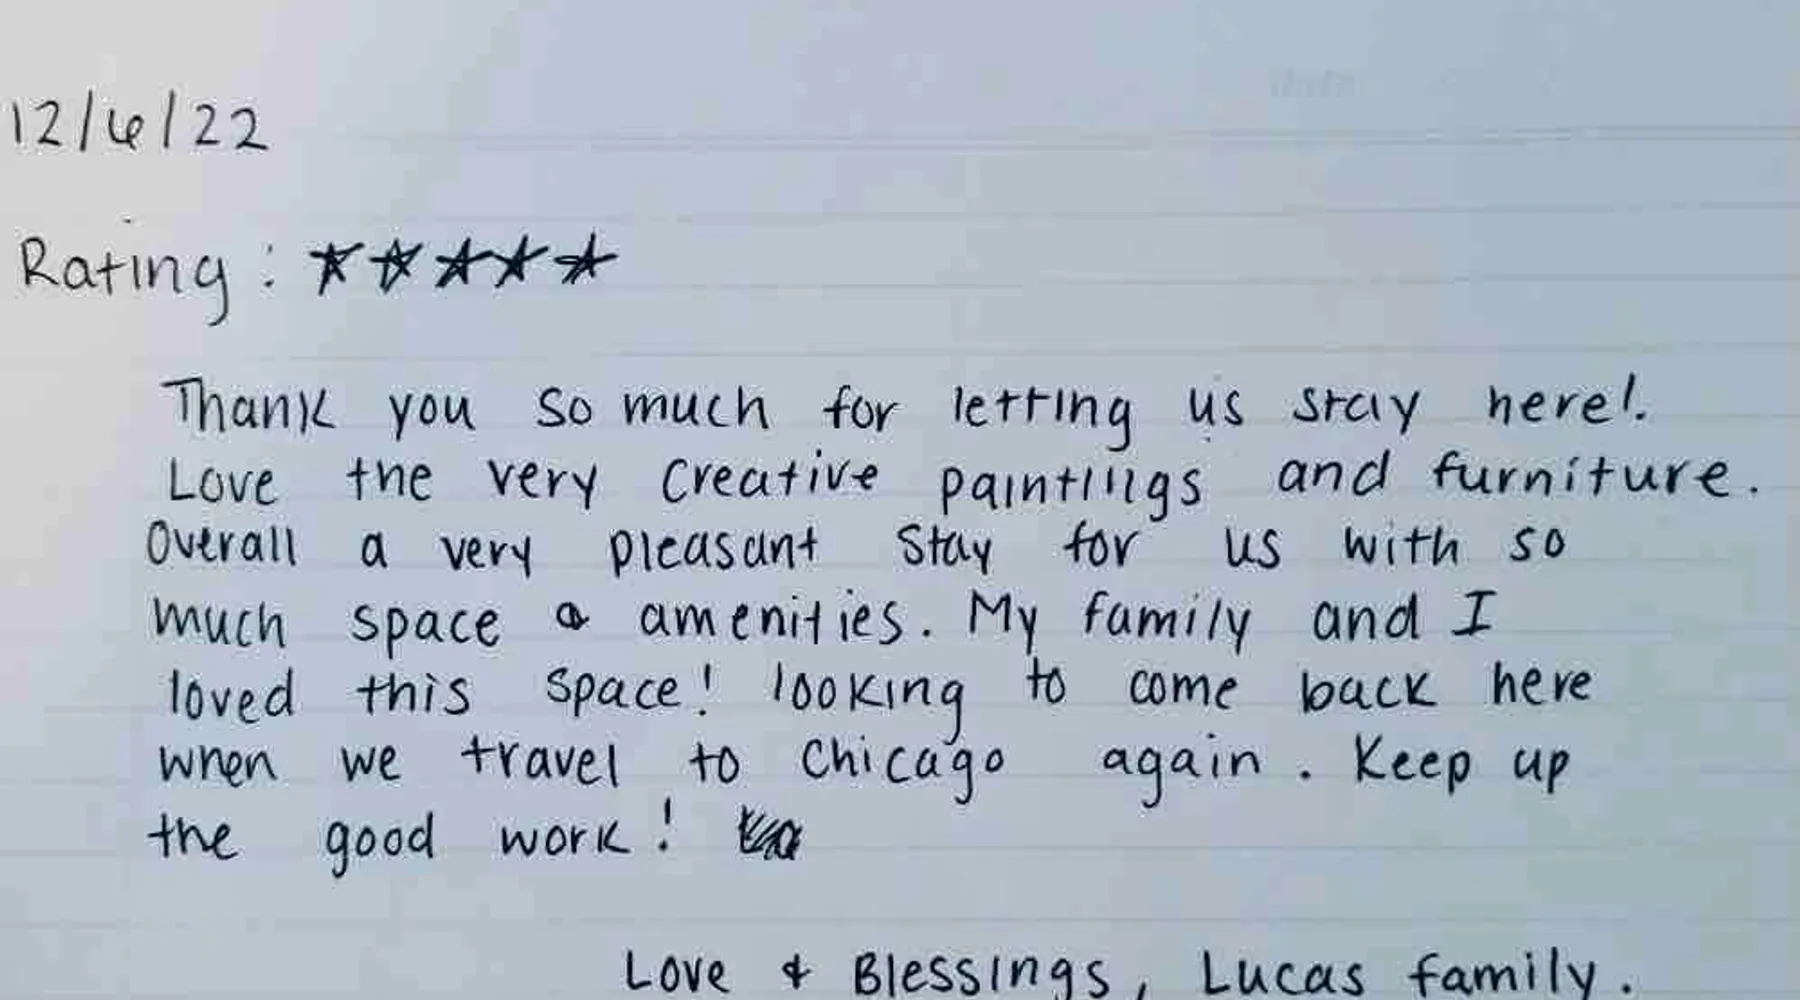 12/6/22
Rating : ★★★★★
Thank you so much for letting us stay here!
Love the very creative paintings and furniture.
Overall a very pleasant stay for us with so
much space & amenities. My family and I
loved this space! looking to come back here
when we travel to Chicago again. Keep up
the good work!
Love & Blessings, Lucas family.